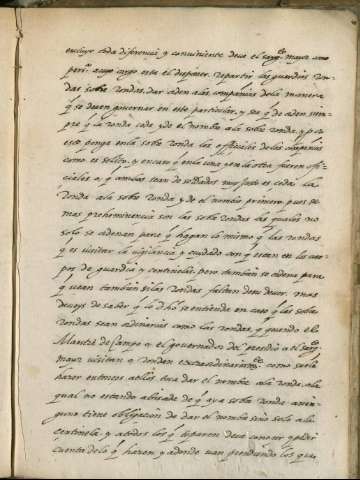 excluye toda diferencia y conviniente deve el sarg.to mayor como
pers.a a cuyo cargo esta el disponer, repartir las guardias Ron
das sobre Rondas, dar orden a las compañias de la manera
q se deven governar en este particular, y sea q de orden siem
pre q la ronda cede y dé el nombre a la sobre ronda, y por
esto ponga en la sobre ronda los officiales de las compañias
como es solito, y en caso q en la una y en la otra fueren offi
ciales o q ambas sean de soldados muy justo es ceda la
Ronda a la sobre Ronda y dé el nombre primero, pues de
mas prehominencia son las sobre Rondas las quales no
solo se ordenan para q hagan lo mismo q las rondas
q es visitar la vigilancia y cuidado con q estan en los cuer
pos de guardia y centinelas, pero tambien se ordena para
q vean tambien si las Rondas faltan de su dever, mas
deveys de saber q lo dho se entiende en caso q las sobre
rondas sean ordinarias como las rondas, q quando el
Maestre de Campo o el governador del presidio o el sarg.to
mayor visitan o rondan extraordinariam.te como suele
hazer entonces a ellos toca dar el nombre a la ronda, la
qual no estando avisada de q aya sobre ronda a nin
guno tiene obligacion de dar el nombre sino solo a la
centinela, y a todos los q toparen deve conocer y pedir
cuenta de lo q hazen, y adonde van prendiendo los que